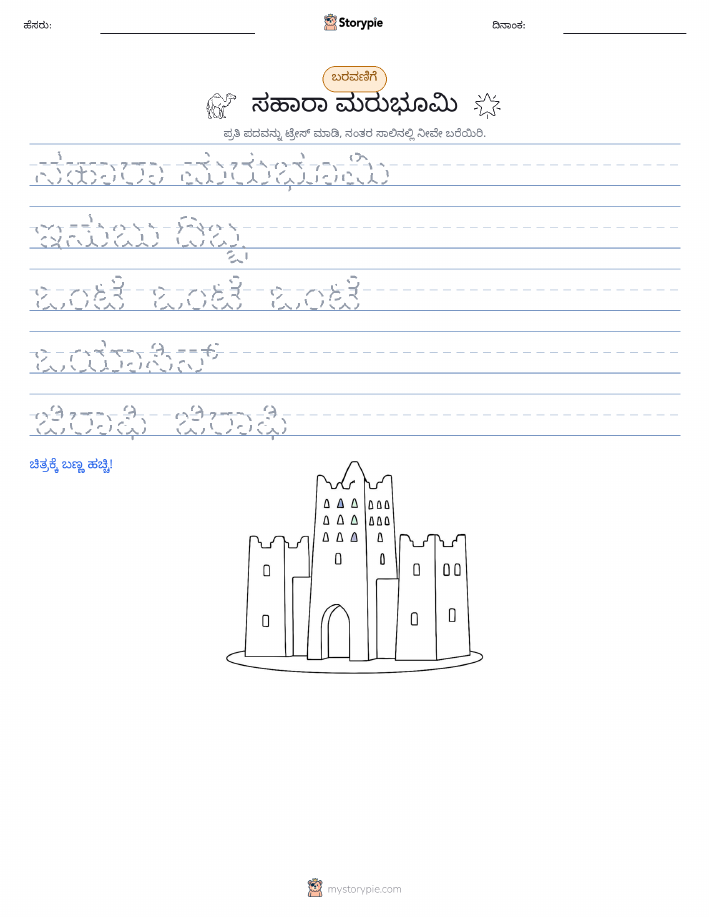 ಹೆಸರು: Storypie ದಿನಾಂಕ:
ಬರವಣಿಗೆ
ಸಹಾರಾ ಮರುಭೂಮಿ
ಪ್ರತಿ ಪದವನ್ನು ಟ್ರೇಸ್ ಮಾಡಿ, ನಂತರ ಸಾಲಿನಲ್ಲಿ ನೀವೇ ಬರೆಯಿರಿ.
ಸಹಾರಾ ಮರುಭೂಮಿ
ಇಸುಬು ದಿಬ್ಬ
ಒಂಟೆ ಒಂಟೆ ಒಂಟೆ
ಓಯಾಸಿಸ್
ಜಿರಾಫಿ ಜಿರಾಫಿ
ಚಿತ್ರಕ್ಕೆ ಬಣ್ಣ ಹಚ್ಚಿ!
mystorypie.com